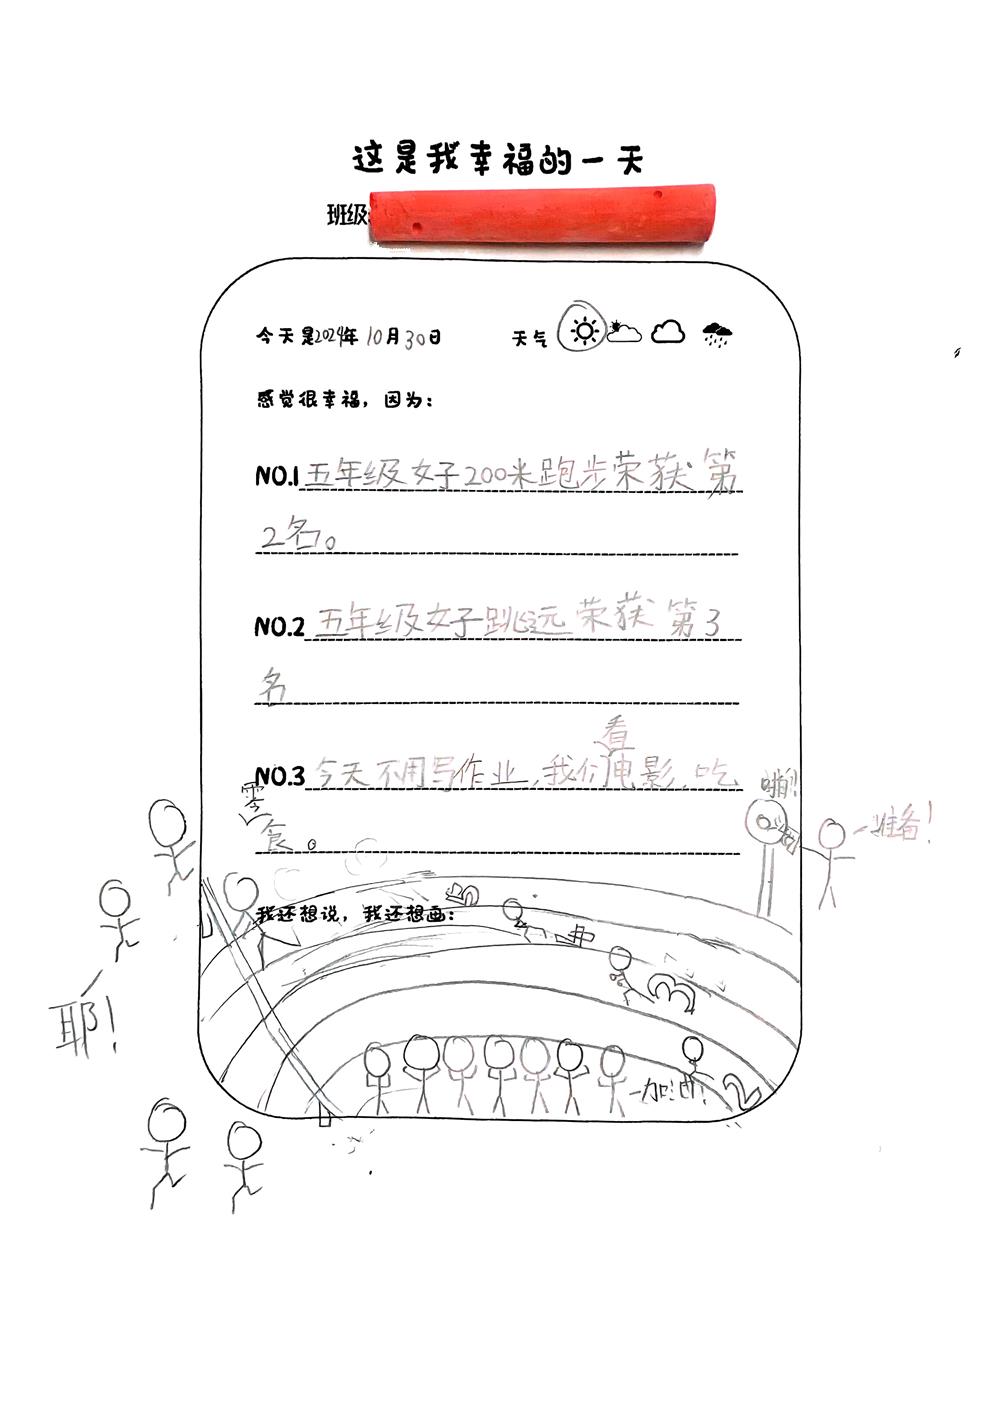 这是我幸福的一天
班级:
今天是2024年10月30日 天气
感觉很幸福，因为：
NO.1 五年级女子200米跑步荣获第
2名。
NO.2 五年级女子跳远荣获第3
名
NO.3 今天不用写作业,我们看电影,吃
零食。
啪!!
准备!
我还想说，我还想画：
耶!
加油!
2